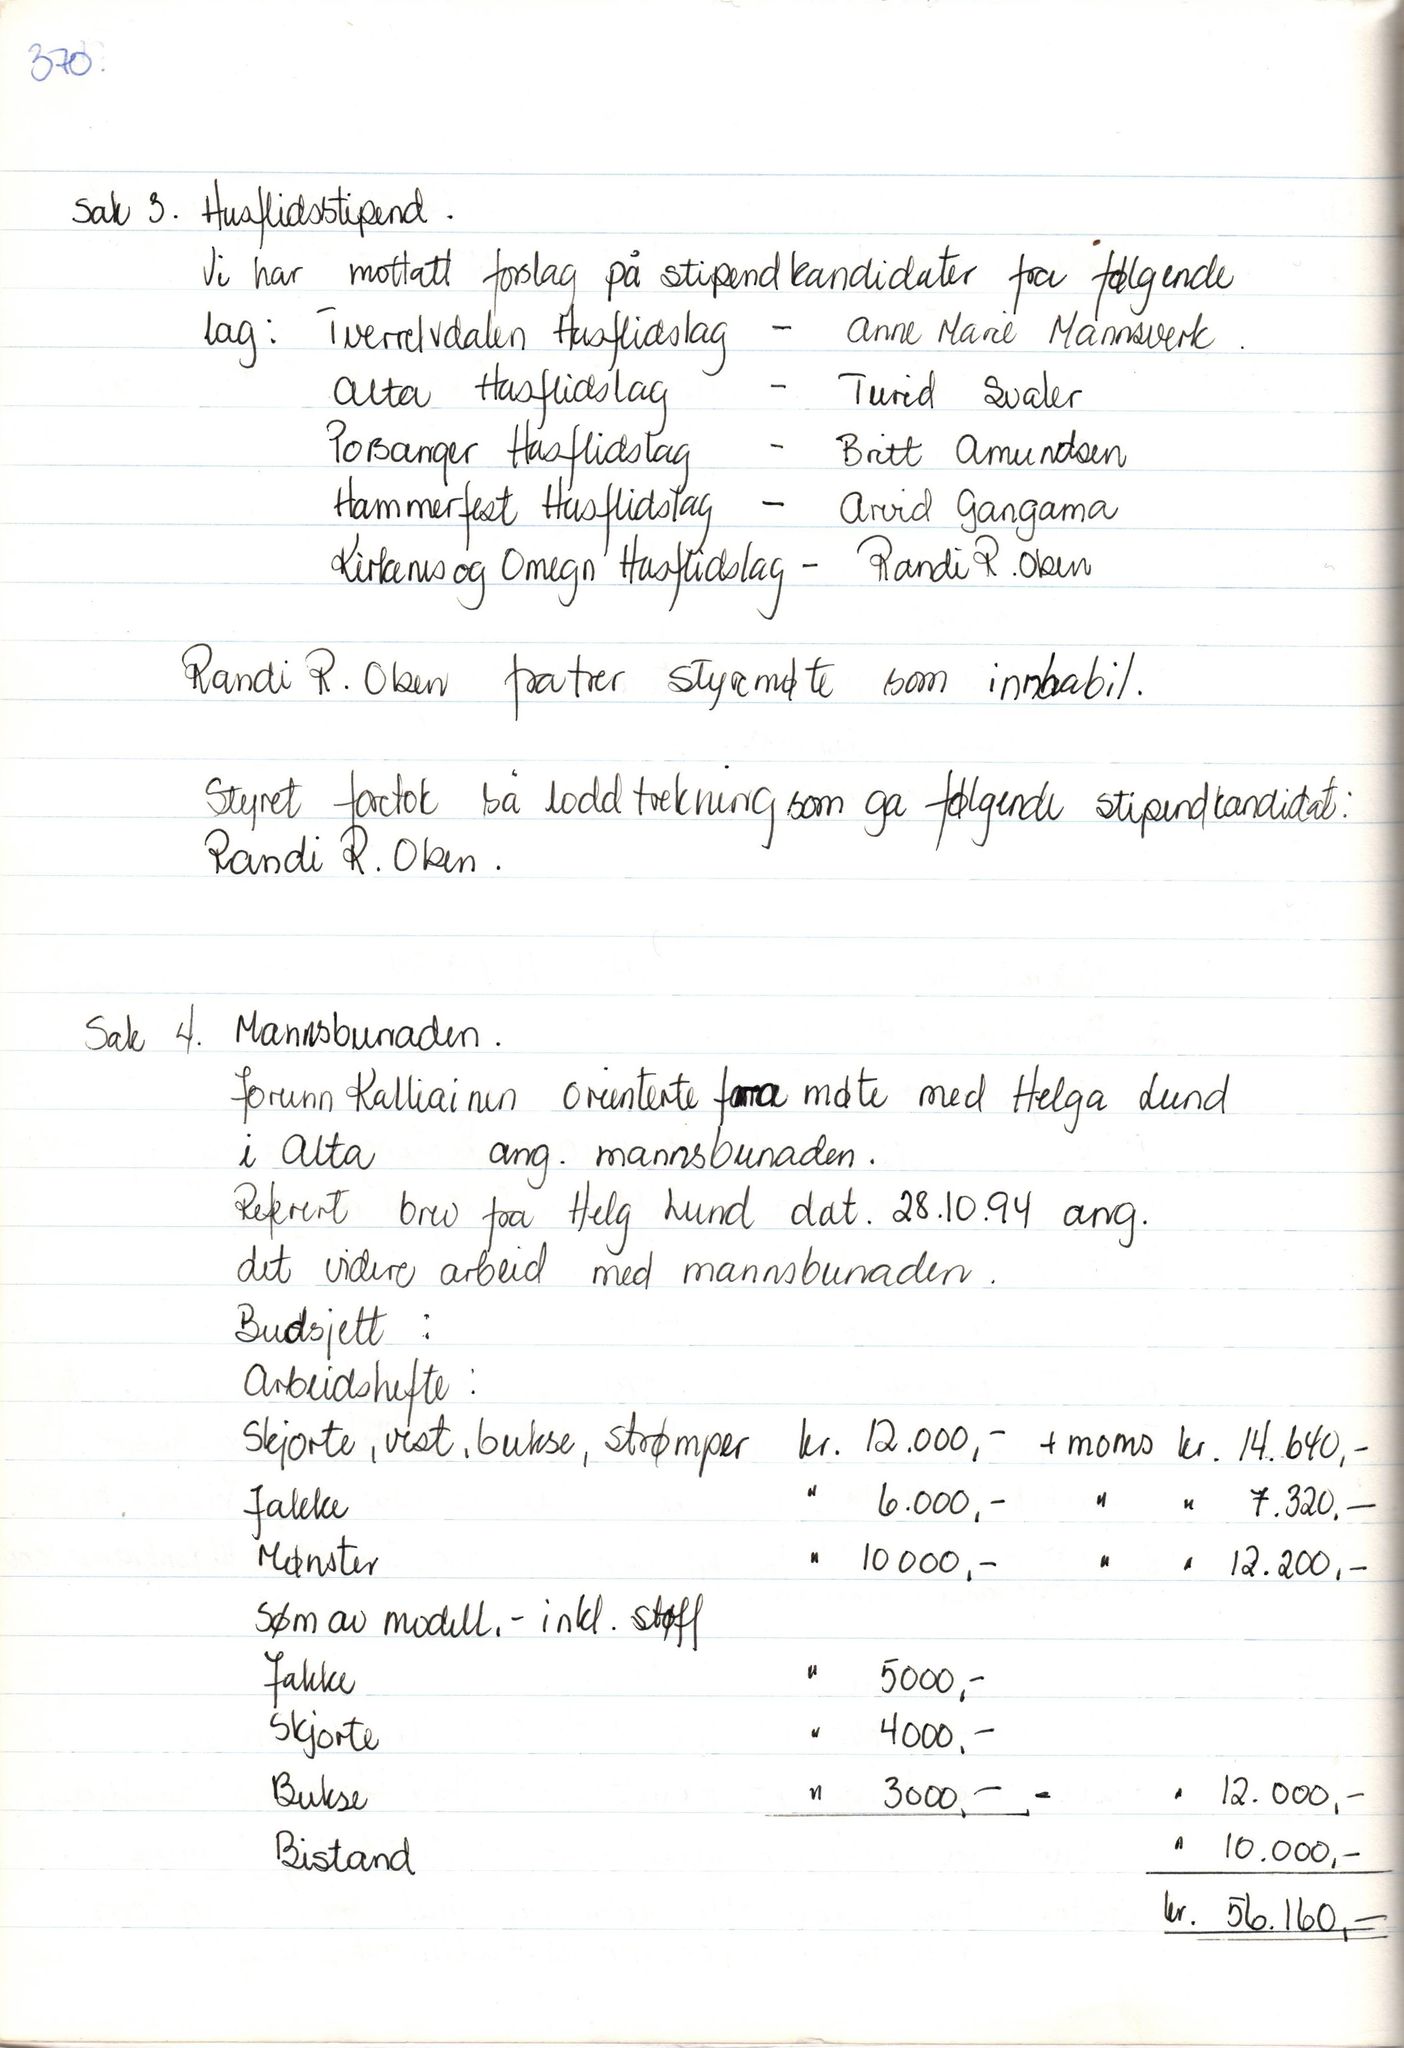 370.
Sak 3. Husflidsstipend.
Vi har mottatt forslag på stipendkandidater fra følgende
lag: Tverrelvdalen Husflidslag - Anne Marie Mannsverk.
Alta Husflidslag - Turid Svaler
Porsanger Husflidslag - Britt Amundsen
Hammerfest Husflidslag - Arvid Gangama
Kirkenes og Omegn Husflidslag - Randi R. Oken
Randi R. Oken fratrer styremøte som innhabil.
Styret foretok så loddtrekning som ga følgende stipendkandidat:
Randi R. Oken.
Sak 4. Mannsbunaden.
Jorunn Kalliainen orienterte fra møte med Helga Lund
i Alta ang. mannsbunaden.
Referert brev fra Helg Lund dat. 28.10.94 ang.
det videre arbeid med mannsbunaden.
Budsjett :
Arbeidshefte :
Skjorte, vest, bukse, strømper kr. 12.000,- + moms kr. 14.640,-
Jakke " 6.000,- " " 7.320,-
Mønster " 10000,- " " 12.200,-
Søm av modell. - inkl. stoff
Jakke " 5000,-
Skjorte " 4000,-
Bukse " 3000,- - " 12.000,-
Bistand " 10.000,-
kr. 56.160,-